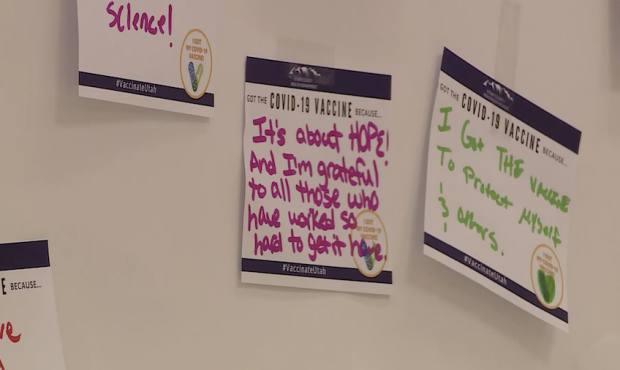 Science!
I GOT
MY COVID-19
VACCINE!
#VaccinateUtah
GOT THE COVID-19 VACCINE BECAUSE...
It's about HOPE!
And I'm grateful
to all those who
have worked so
hard to get it here.
#VaccinateUtah
I GOT THE COVID-19 VACCINE BECAUSE...
I Got THE VACCINE
To Protect Myself
& others.
#VaccinateUtah
E BECAUSE...